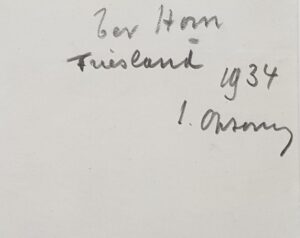 ter Horn
Friesland
1934
I. Opsomer